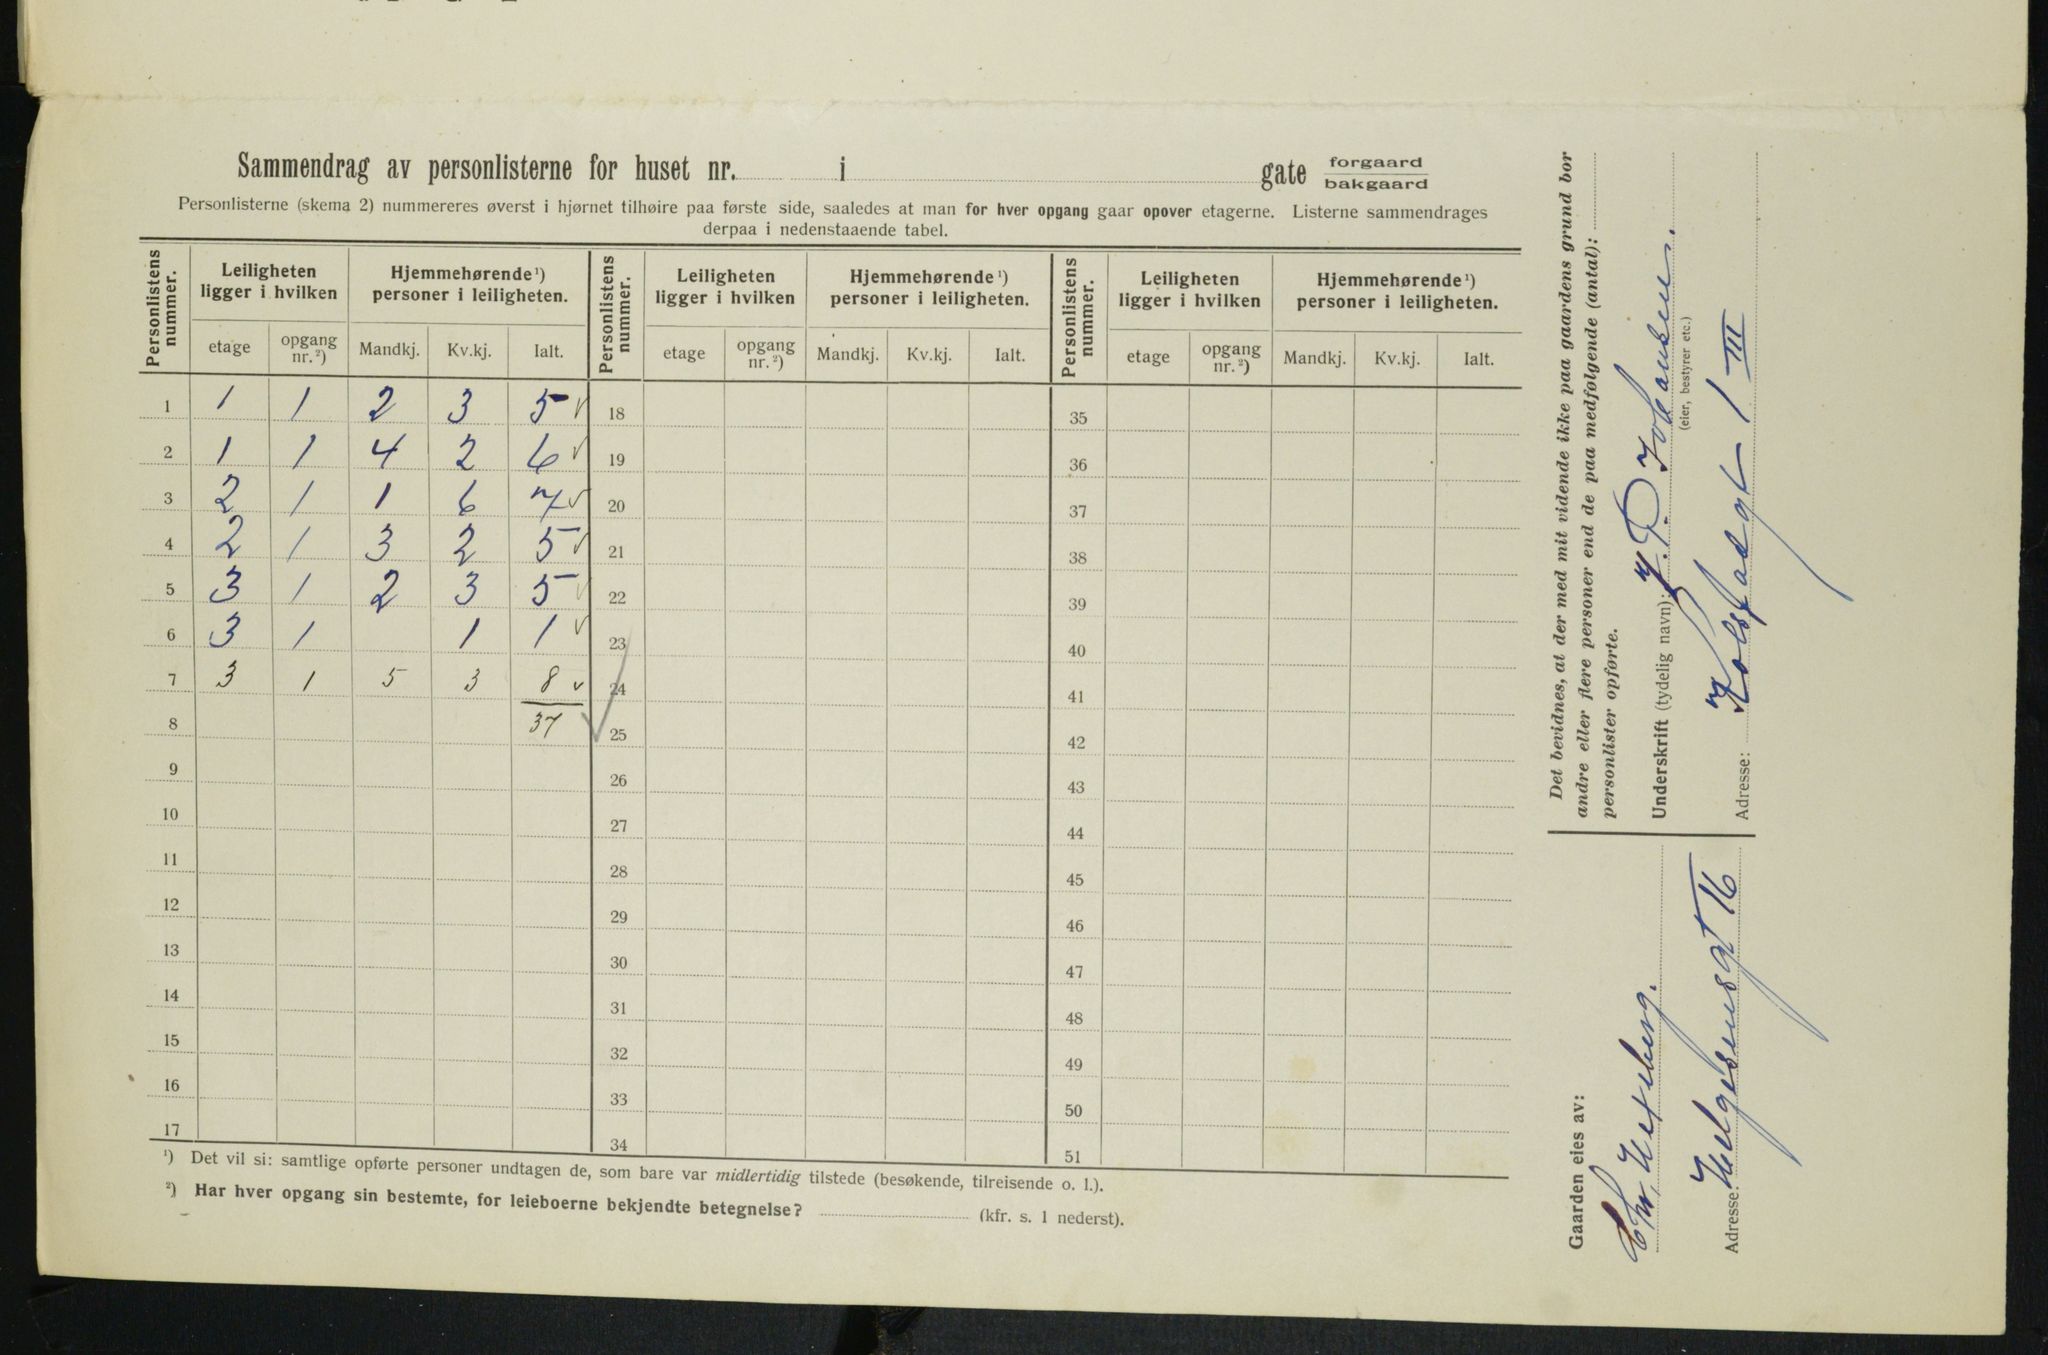 Sammendrag av personlisterne for huset nr. i gate forgaard
bakgaard
Personlisterne (skema 2) nummereres øverst i hjørnet tilhøire paa første side, saaledes at man for hver opgang gaar opover etagerne. Listerne sammendrages
derpaa i nedenstaaende tabel.
Personlistens nummer. Leiligheten ligger i hvilken Hjemmehørende ¹) personer i leiligheten. Personlistens nummer. Leiligheten ligger i hvilken Hjemmehørende ¹) personer i leiligheten. Personlistens nummer. Leiligheten ligger i hvilken Hjemmehørende ¹) personer i leiligheten.
etage opgang nr. ²) Mandkj. Kv.kj. Ialt. etage opgang nr. ²) Mandkj. Kv.kj. Ialt. etage opgang nr. ²) Mandkj. Kv.kj. Ialt.
1 1 1 2 3 5 ✓ 18 35
2 1 1 4 2 6 ✓ 19 36
3 2 1 1 6 7 ✓ 20 37
4 2 1 3 2 5 ✓ 21 38
5 3 1 2 3 5 ✓ 22 39
6 3 1 1 1 ✓ 23 40
7 3 1 5 3 8 ✓ 24 41
8 37 25 42
9 26 43
10 27 44
11 28 45
12 29 46
13 30 47
14 31 48
15 32 49
16 33 50
17 34 51
¹) Det vil si: samtlige opførte personer undtagen de, som bare var midlertidig tilstede (besøkende, tilreisende o. l.).
²) Har hver opgang sin bestemte, for leieboerne bekjendte betegnelse? (kfr. s. 1 nederst).
Det bevidnes, at der med mit vidende ikke paa gaardens grund bor
andre eller flere personer end de paa medfølgende (antal):
personlister opførte.
Underskrift (tydelig navn): Johansen.
(eier, bestyrer etc.)
Adresse: 1 III
Gaarden eies av:
Chr.
Adresse. Helgesensgt 16